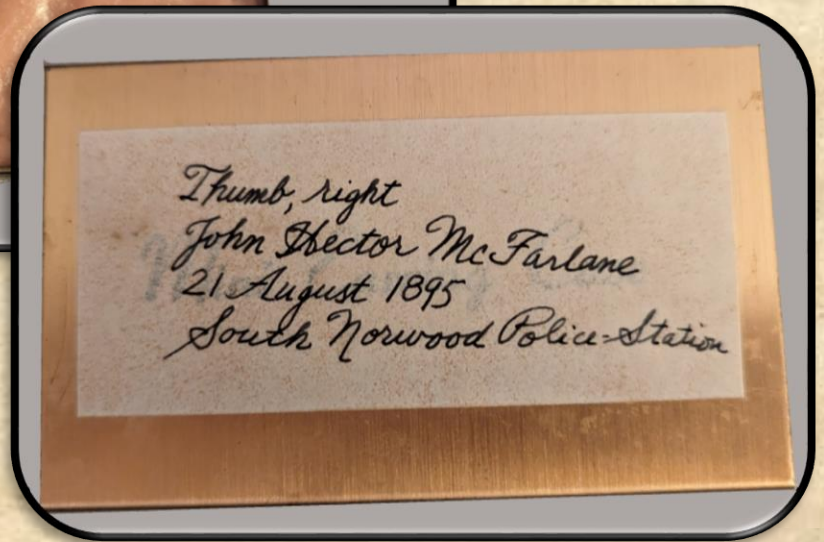 Thumb, right
John Hector McFarlane
21 August 1895
South Norwood Police-Station